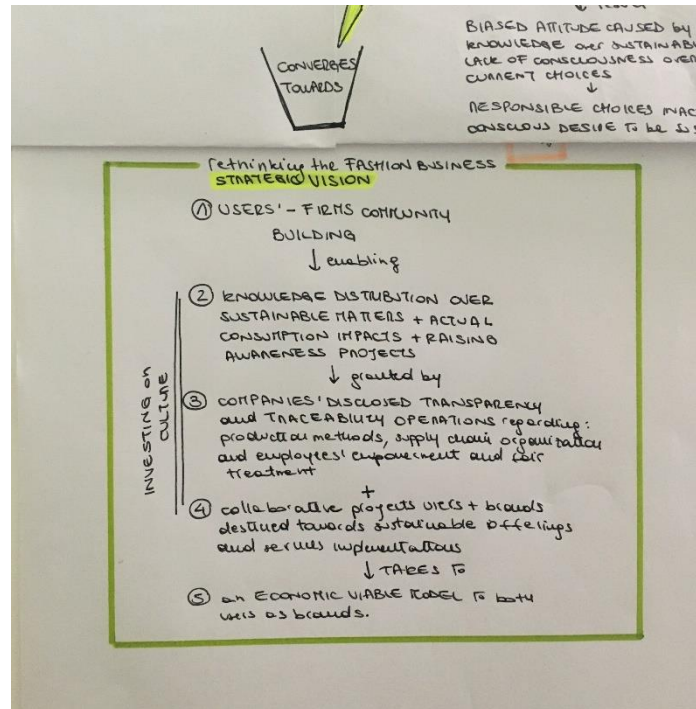 BIASED ATTITUDE CAUSED by
KNOWLEDGE over SUSTAINABL
LACK OF CONSCIOUSNESS OVER
CURRENT CHOICES
RESPONSIBLE CHOICES INAC
CONSCIOUS DESIRE To be SUS
CONVERGES
TOWARDS
rethinking the FASHION BUSINESS
STRATEGIC VISION
1 USERS' - FIRMS COMMUNITY
BUILDING
↓ enabling
2 KNOWLEDGE DISTRIBUTION OVER
SUSTAINABLE MATTERS + ACTUAL
CONSUMPTION IMPACTS + RAISING
AWARENESS PROJECTS
↓ granted by
3 COMPANIES' DISCLOSED TRANSPARENCY
and TRACEABILITY OPERATIONS regarding:
production methods, supply chain organization
and employees' empowerment and fair
treatment
+
4 collaborative projects users + brands
destined towards sustainable offerings
and services implementations
↓ TAKES TO
5 an ECONOMIC VIABLE MODEL To both
users as brands.
INVESTING on
CULTURE